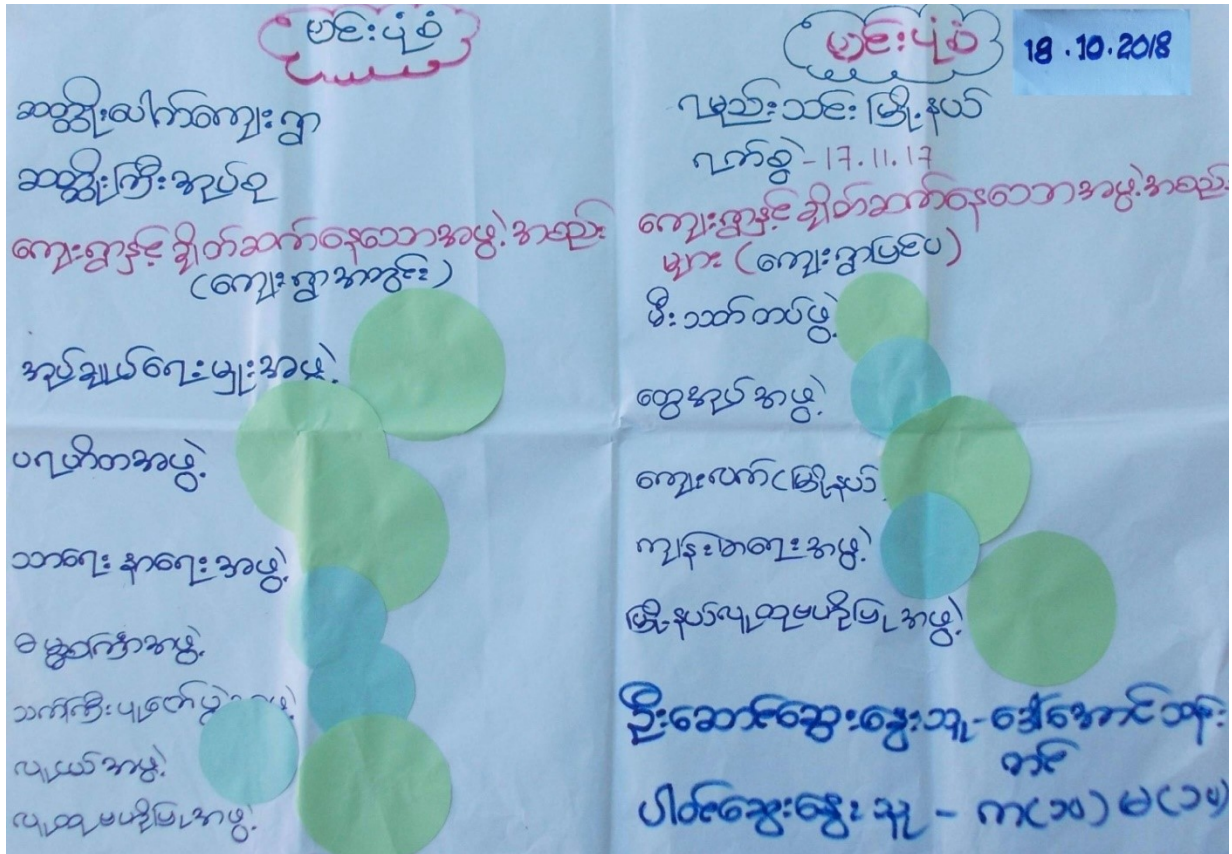 ဗင်းပုံစံ
ဆတ္တိုးပေါက်ကျေးရွာ
ဆတ္တိုးကြီးအုပ်စု
ကျေးရွာနှင့် ချိတ်ဆက်နေသောအဖွဲ့အစည်း
(ကျေးရွာအတွင်း)
အုပ်ချုပ်ရေးမှူးအဖွဲ့
ပရဟိတအဖွဲ့
သာရေး နာရေးအဖွဲ့
ဓမ္မစကြာအဖွဲ့
သက်ကြီးပူဇော်ပွဲအဖွဲ့
လူငယ်အဖွဲ့
လူထုမဟိုပြုအဖွဲ့
ဗင်းပုံစံ
18.10.2018
ရမည်းသင်းမြို့နယ်
ရက်စွဲ - 17.11.17
ကျေးရွာနှင့် ချိတ်ဆက်နေသောအဖွဲ့အစည်း
များ (ကျေးရွာပြင်ပ)
မီးသတ်တပ်ဖွဲ့
ထွေအုပ်အဖွဲ့
ကျေးလက်(မြို့နယ်)
ကျန်းမာရေးအဖွဲ့
မြို့နယ်လူထုမဟိုပြုအဖွဲ့
ဦးဆောင်ဆွေးနွေးသူ - ဒေါ်အောင်သန်း
တင်
ပါဝင်ဆွေးနွေးသူ - ကျာ